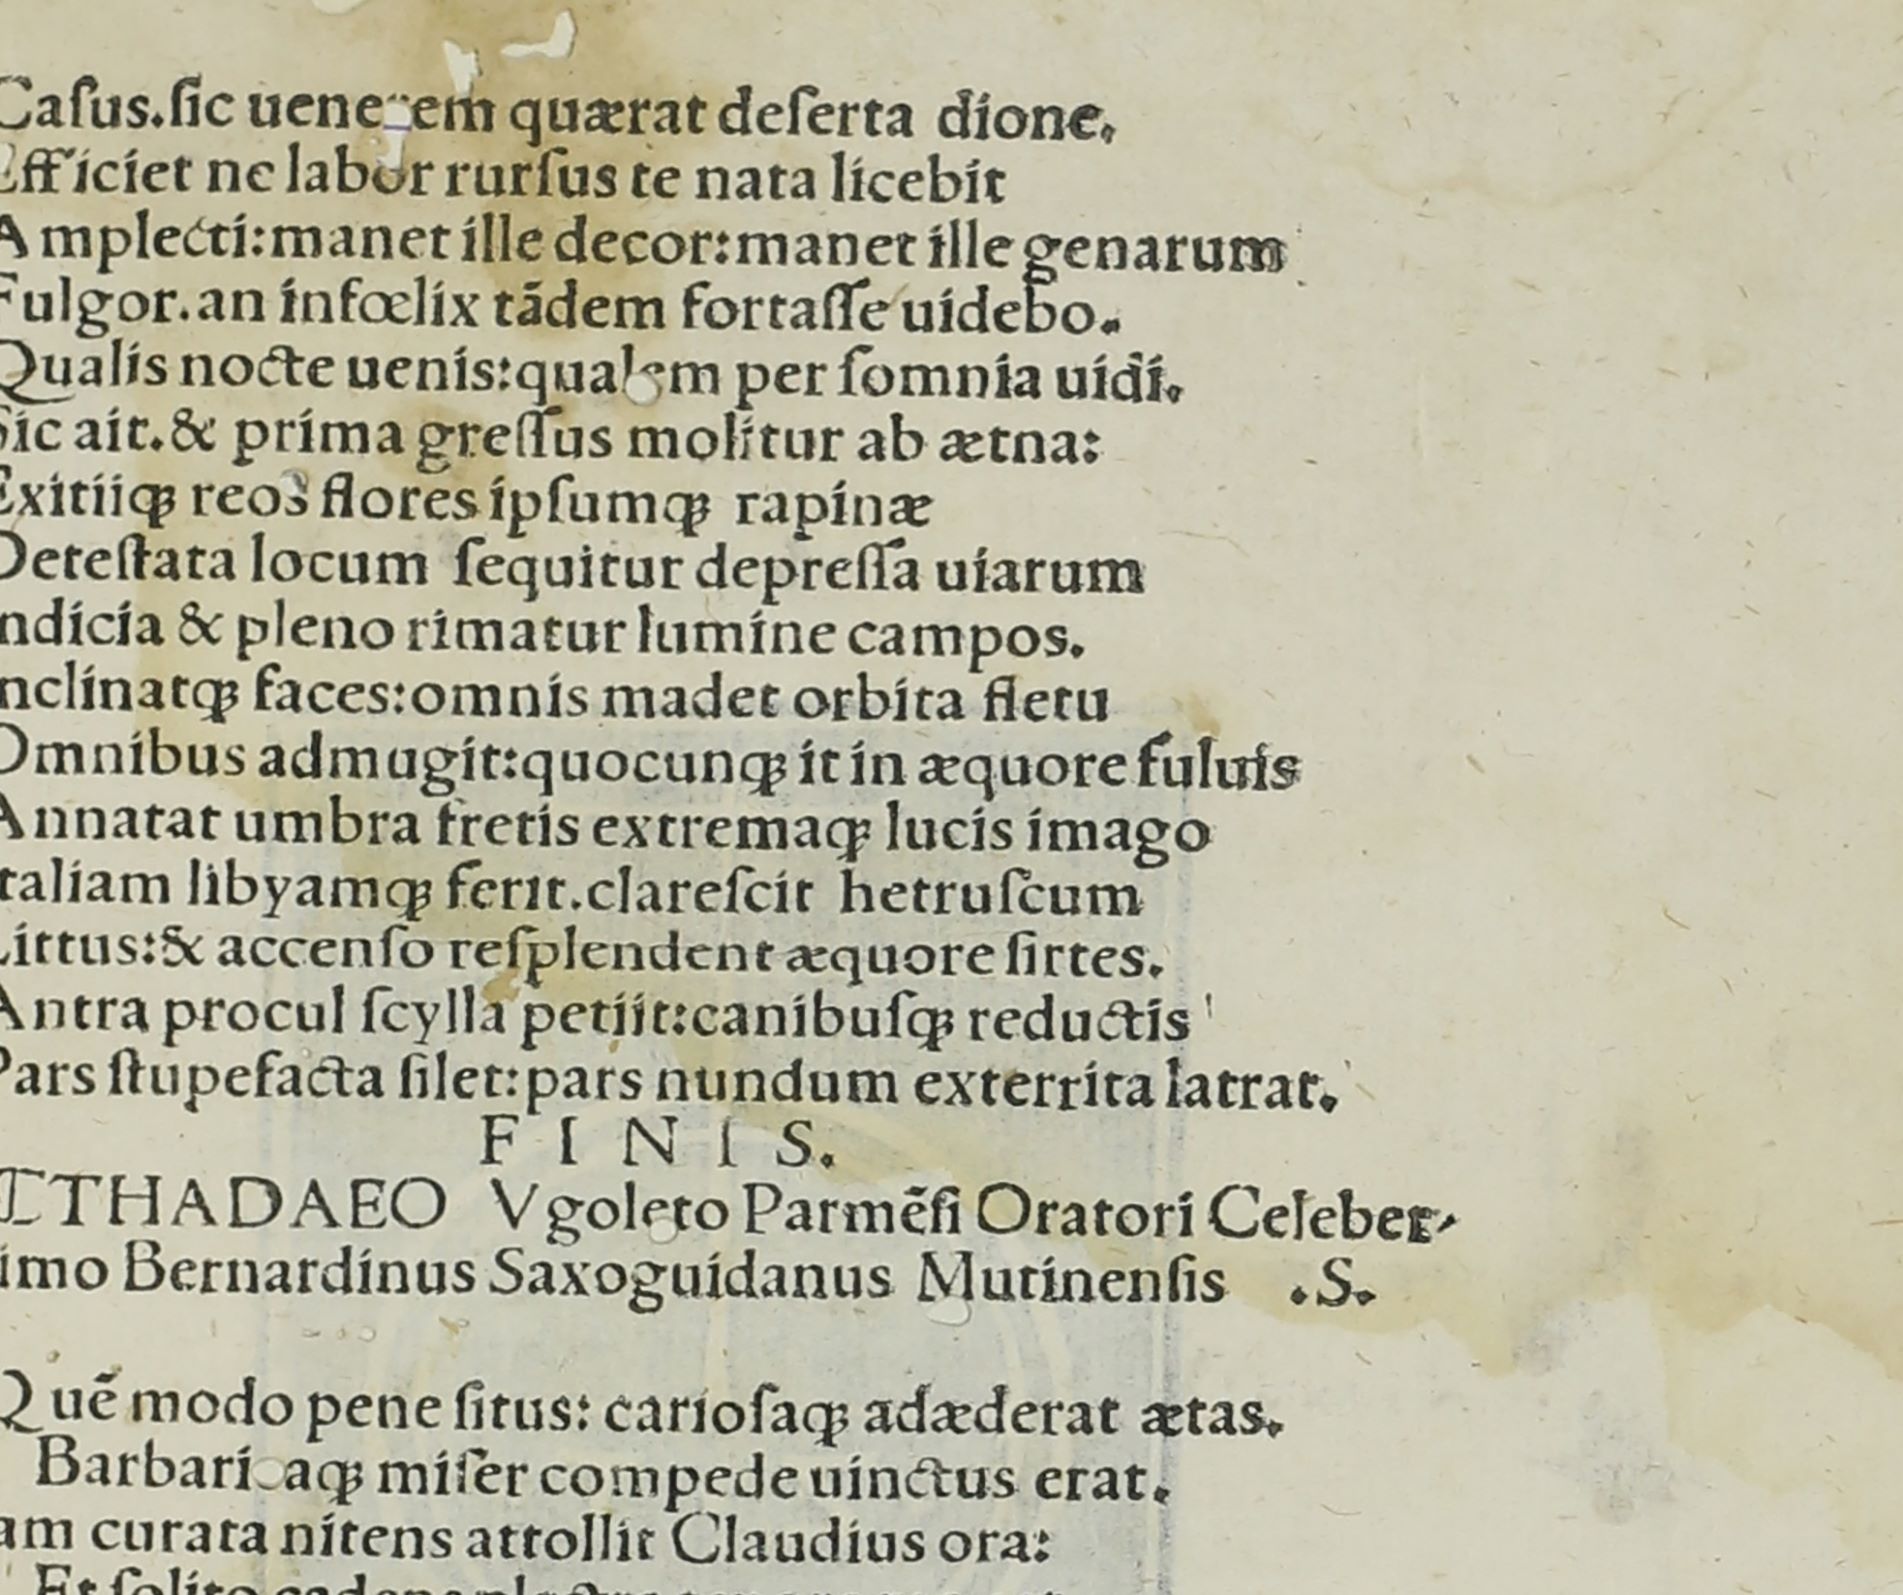 Caſus.ſic uenerem quærat deſerta dione.
Efficiet ne labor rurſus te nata licebit
Amplecti:manet ille decor:manet ille genarum
Fulgor.an infœlix tādem fortaſſe uidebo.
Qualis nocte uenis:qualem per ſomnia uidi.
Sic ait.& prima greſſus molitur ab ætna:
Exitiiqꝫ reos flores ipſumqꝫ rapinæ
Deteſtata locum ſequitur depreſſa uiarum
ndicia & pleno rimatur lumine campos.
nclinatqꝫ faces:omnis madet orbita fletu
Omnibus admugit:quocunqꝫ it in æquore fuluis
Annatat umbra fretis extremaqꝫ lucis imago
taliam libyamqꝫ ferit.clareſcit hetruſcum
Littus:& accenſo reſplendent æquore ſirtes.
Antra procul ſcylla petiit:canibuſqꝫ reductis
Pars ſtupefacta ſilet:pars nundum exterrita latrat.
F I N I S.
THADAEO Vgoleto Parmēſi Oratori Celeber-
imo Bernardinus Saxoguidanus Mutinenſis .S.
Quē modo pene ſitus: carioſaqꝫ adæderat ætas.
Barbaricaqꝫ miſer compede uinctus erat.
am curata nitens attollit Claudius ora:
Et ſolito